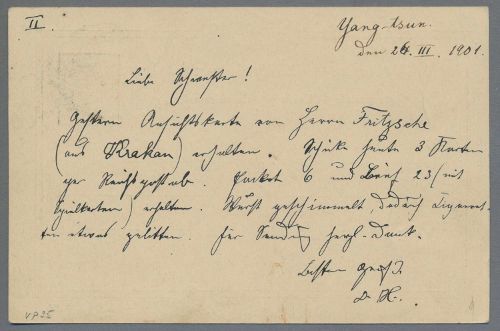 II.
Yang-tsun.
den 26. III. 1901.
Liebe Schwester!
Gestern Ansichtskarte von Herrn Fritzsche
(aus Krakau) erhalten. Schicke heute 3 Karten
per Reichspost ab. Packet 6 und Brief 23 (mit
Spielkarten) erhalten. Wurst geschimmelt, dadurch Cigarret-
ten etwas gelitten. Für Sendg herzl. Dank.
Besten Gruß
D. H.
VP25